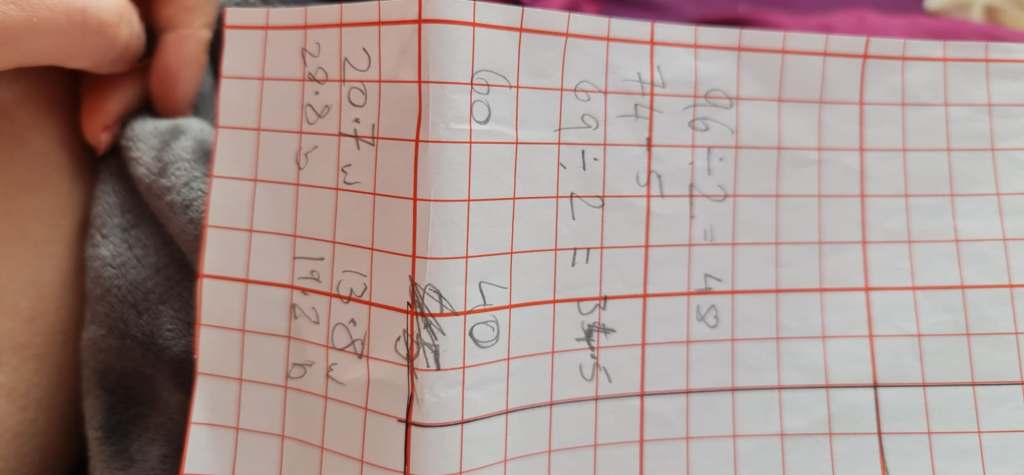 96 ÷ 2 = 48
74-5
69 ÷ 2 = 34.5
60 40
20.7 w 13.8 w
28.8 b 19.2 b